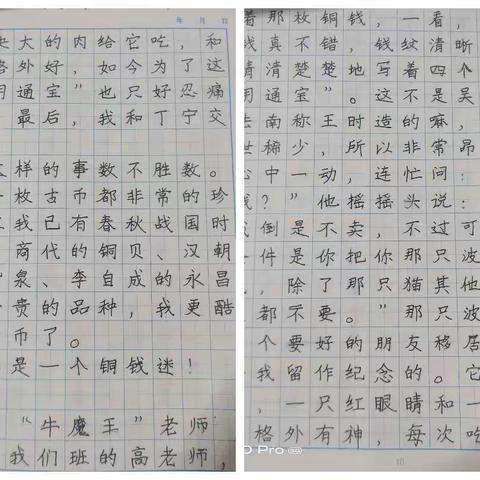 年 月 日
大的肉给它吃，和
外好，如今为了这
用通宝”也只好忍痛
最后，我和丁宁交
样的事数不胜数。
枚古币都非常的珍
我已有春秋战国时
商代的铜贝、汉朝
泉、李自成的永昌
贵的品种，我更酷
币了。
是一个铜钱迷！
“牛魔王”老师
我们班的高老师，
着那枚铜钱，一看，
真不错，钱纹清晰
清清楚楚地写着四个
用通宝”。这不是吴
南称王时造的嘛，
稀少，所以非常昂
心中一动，连忙问：
？”他摇摇头说：
倒是不卖，不过可
件是你把你那只波
，除了那只猫其他
都不要。”那只波
个要好的朋友移居
我留作纪念的。它
，一只红眼睛和一
格外有神，每次吃
10
D Pro